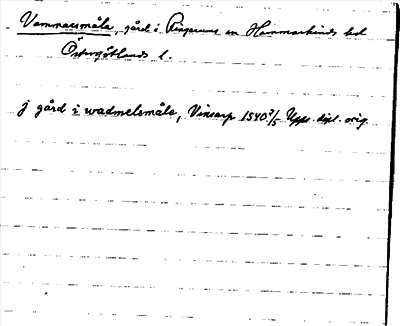 Vammarsmåla, gård i Ringarums sn Hammarkinds hd
Östergötlands l.
j gård i wadmelsmåla, Vinsarp 1540 2/5 Upps. dipl. orig.